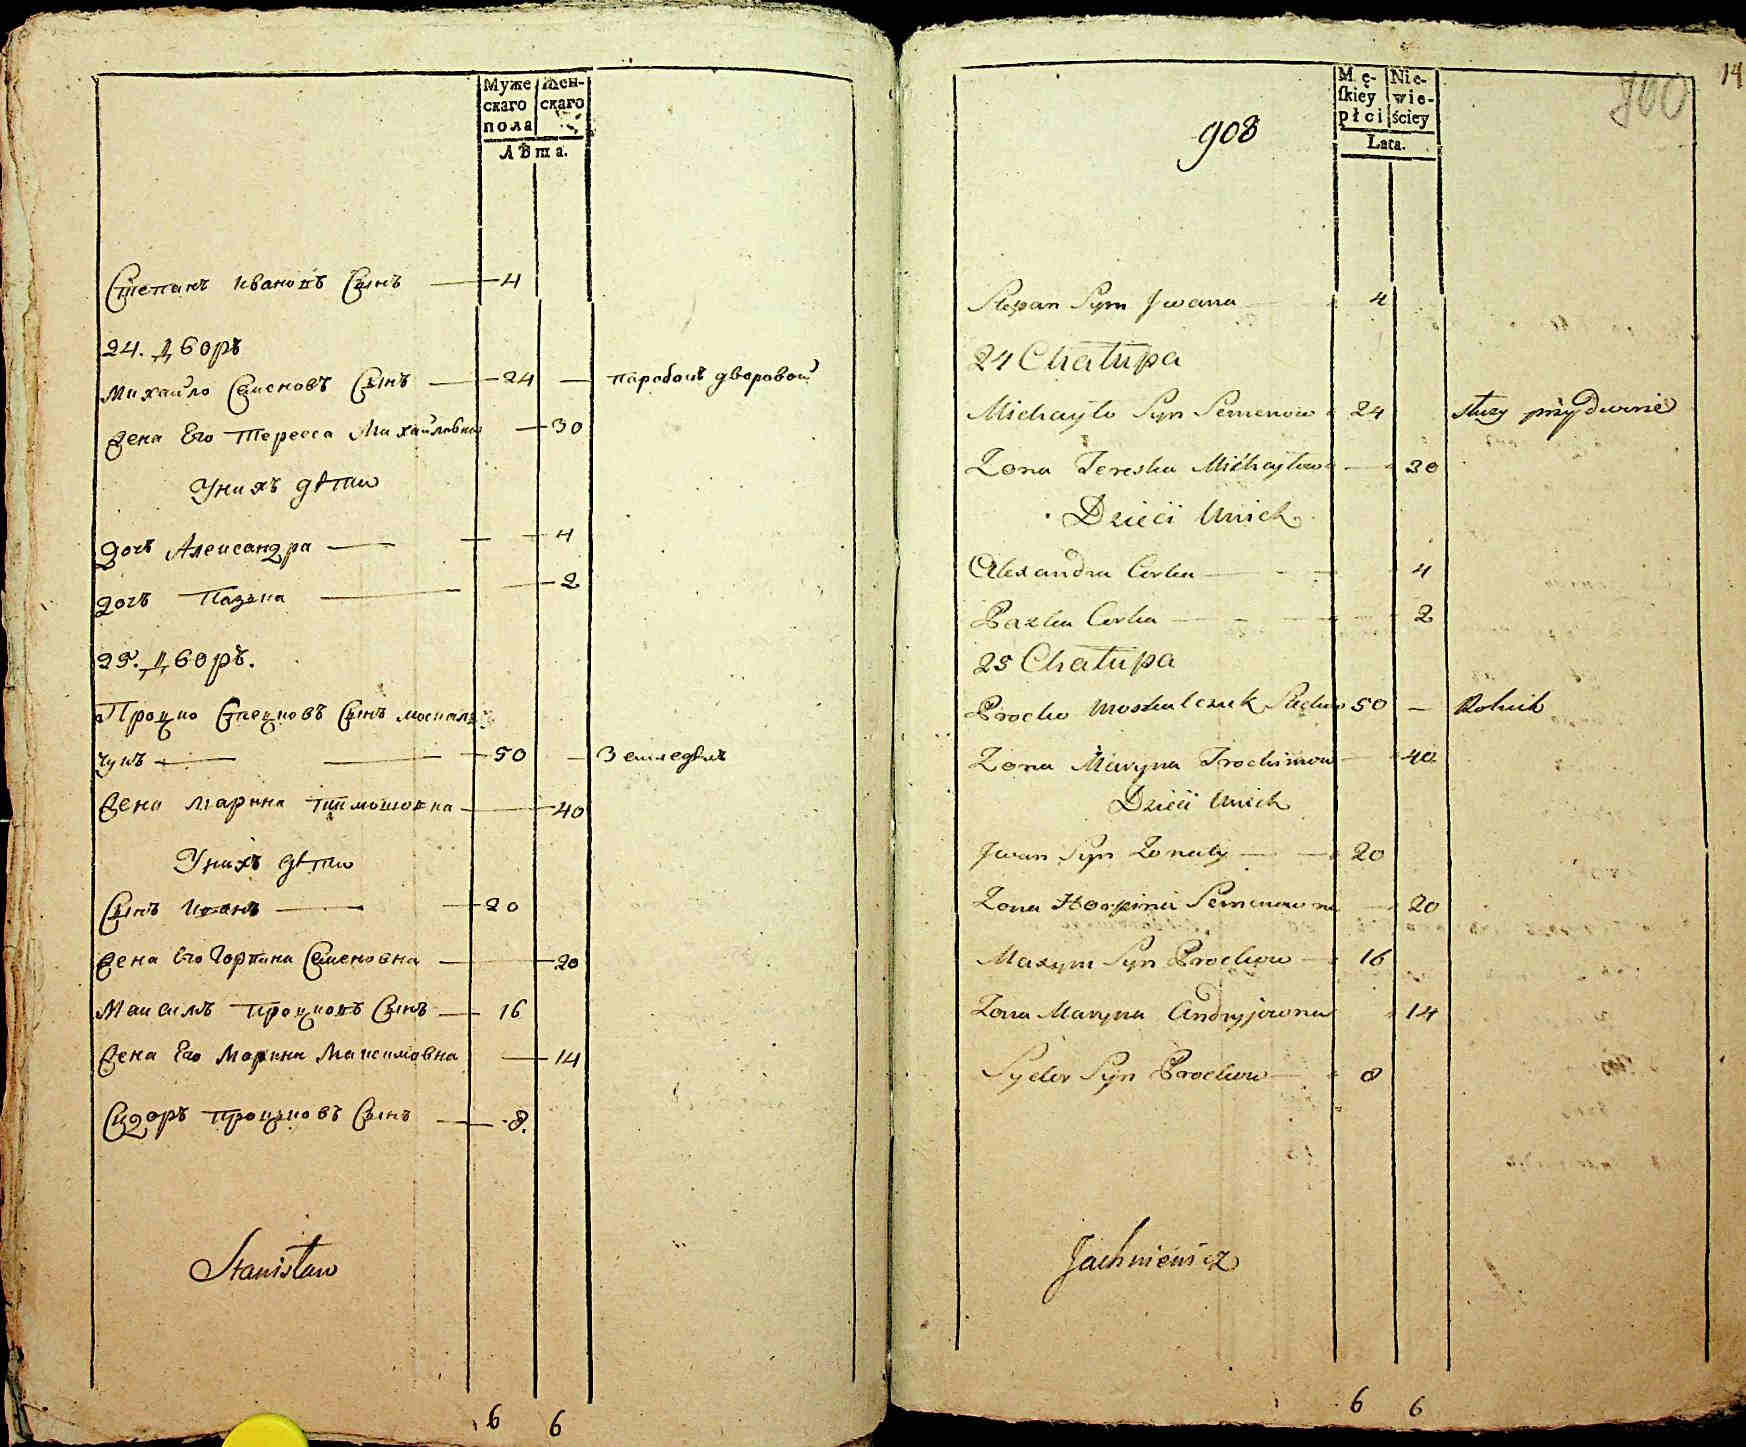 Муже
скаго
пола
Жен-
скаго
Лѣта.
Степанъ Ивановъ Сынъ 4
24. Дворъ
Михайло Семеновъ Сынъ 24 паробокъ дворовой
Жена Его Тереса Михайловна 30
У нихъ дѣти
Дочъ Александра 4
дочъ Пазька 2
25. Дворъ.
Процко Стецковъ Сынъ москаль
чукъ 50 Земледѣлъ
Жена Марина Тимошовна 40
У нихъ дѣти
Сынъ Иванъ 20
Жена Его Горпина Семеновна 20
Максимъ Процковъ Сынъ 16
Жена Его Марина Максимовна 14
Сидоръ Процковъ Сынъ 8.
Stanisław
6 6
14
800
908
Mę-
ſkiey
płci
Nie-
wie-
ściey
Lata.
Stepan Syn Jwana 4
24 Chałupa
Michayło Syn Semenow 24 służy przy dworie
Zona Tereska Michayłow 30
Dzieci Unich
Alexandra Corka 4
Pazka Corka 2
25 Chałupa
Procko Moskalczuk 50 Rolnik
Zona Maryna 40
Dzieci Unich
Jwan Syn Zonaty 20
Zona Horpina Semenowna 20
Maxym Syn Prockow 16
Zona Maryna Andryjowna 14
Sydor Syn Prockow 8
Jachniewicz
6 6